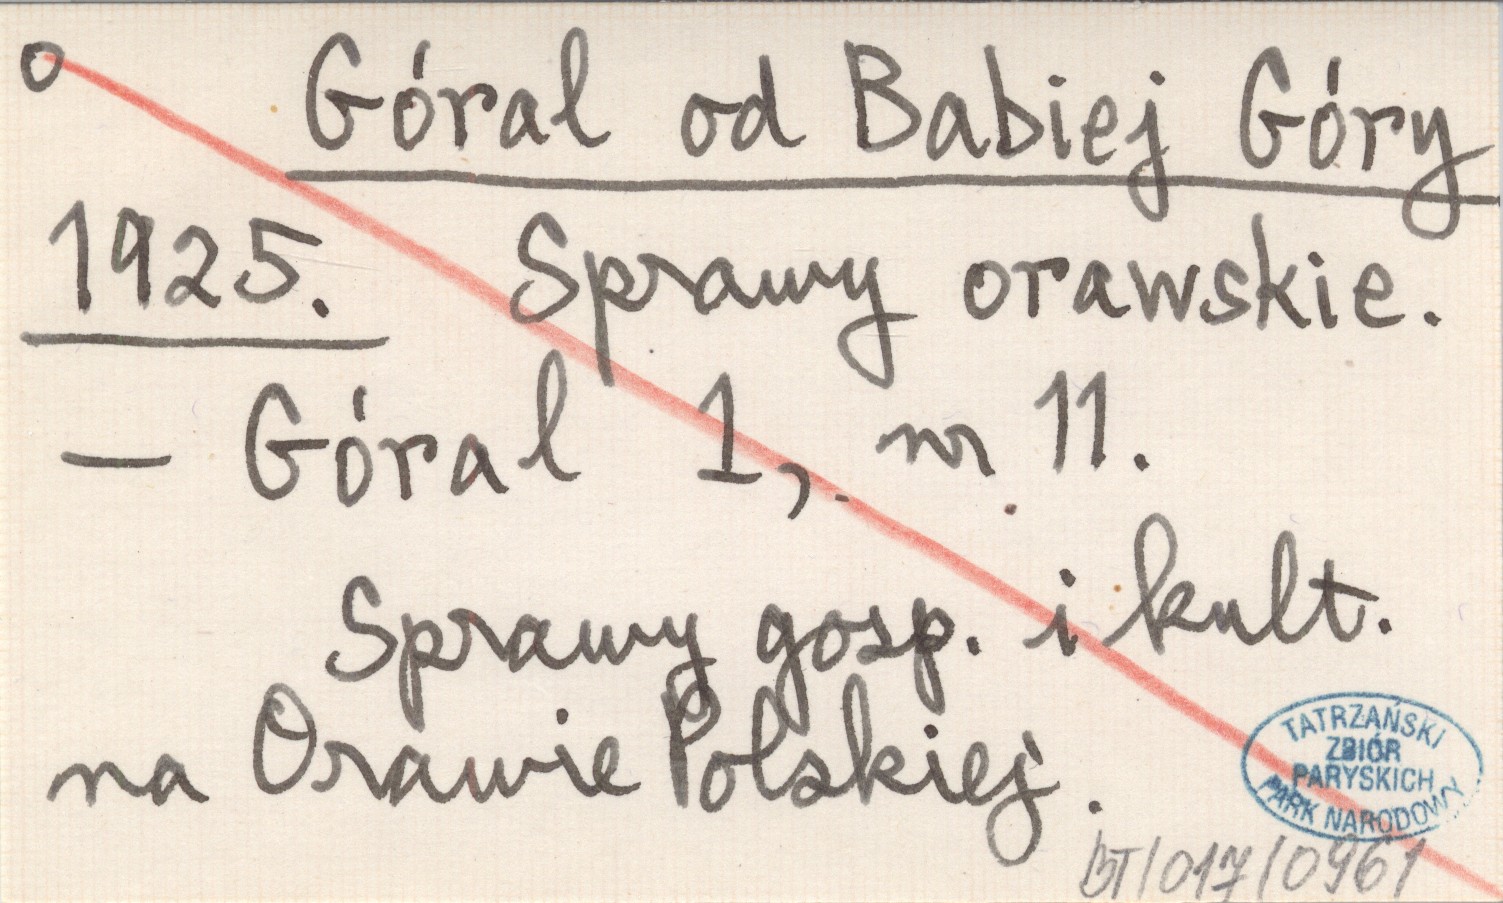 o Góral od Babiej Góry
1925. Sprawy orawskie.
— Góral 1, nr 11.
Sprawy gosp. i kult.
na Orawie Polskiej.
TATRZAŃSKI
ZBIÓR
PARYSKICH
PARK NARODOWY
BT/017/0961